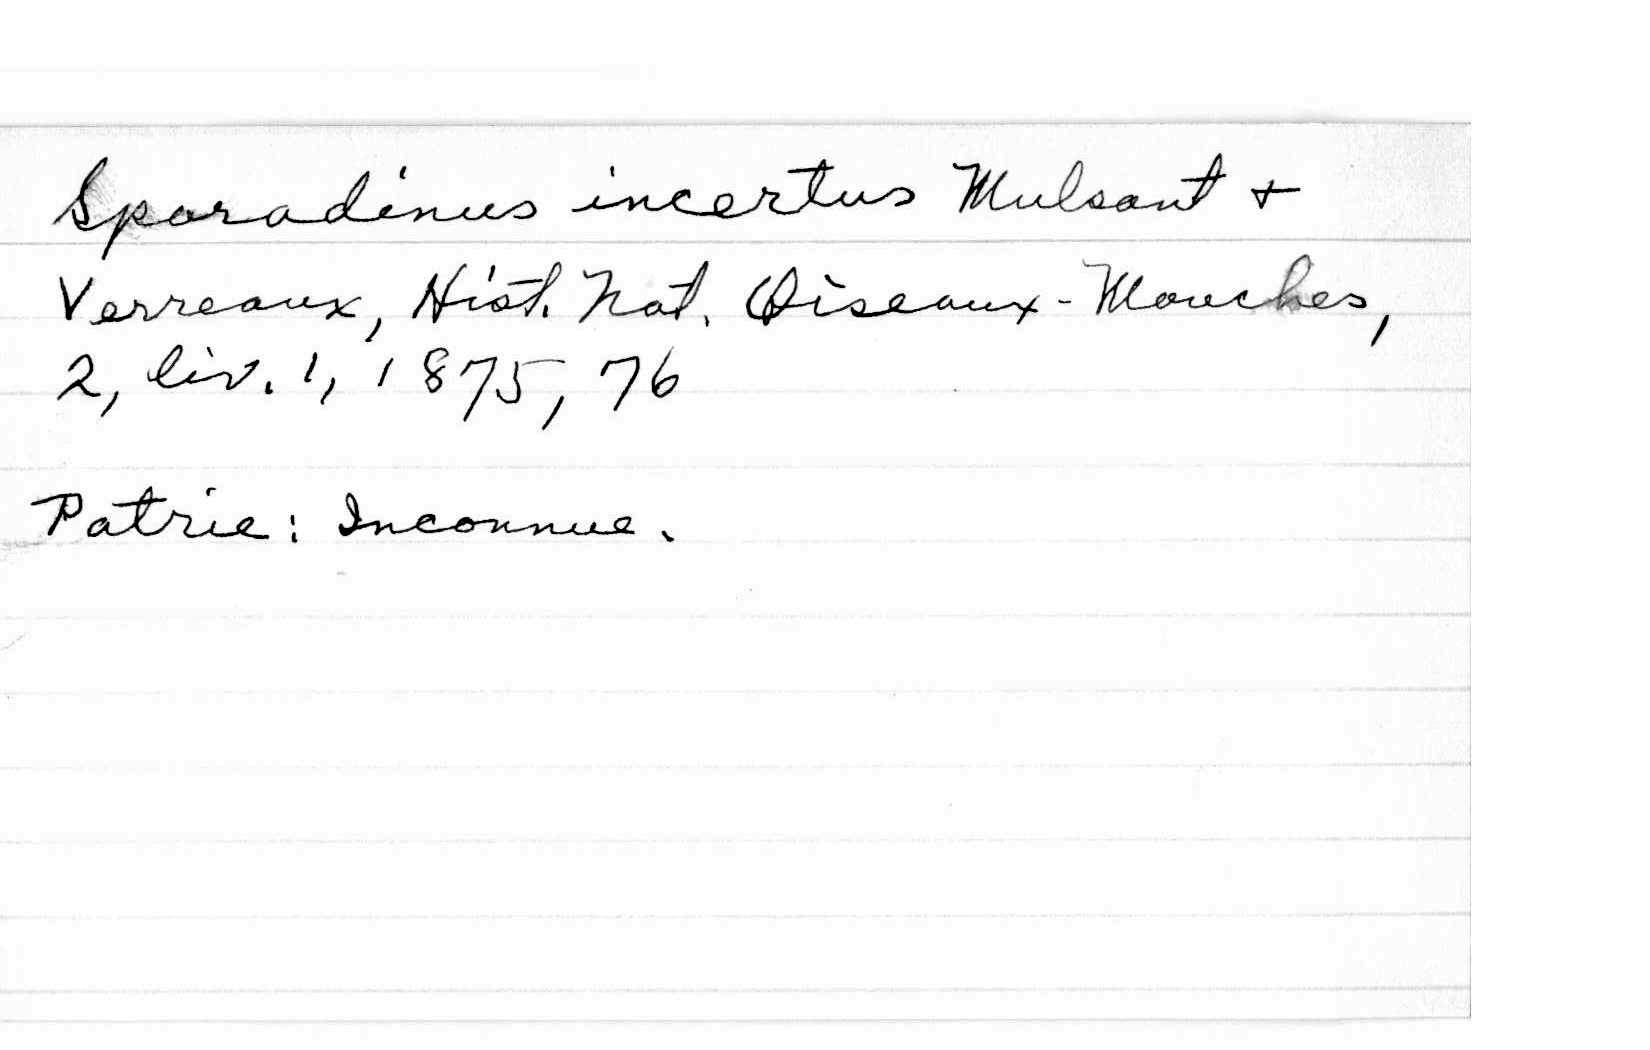 Sporadinus incertus Mulsant +
Verreaux, Hist. Nat. Oiseaux-Mouches,
2, liv. 1, 1875, 76
Patrie: Inconnue.